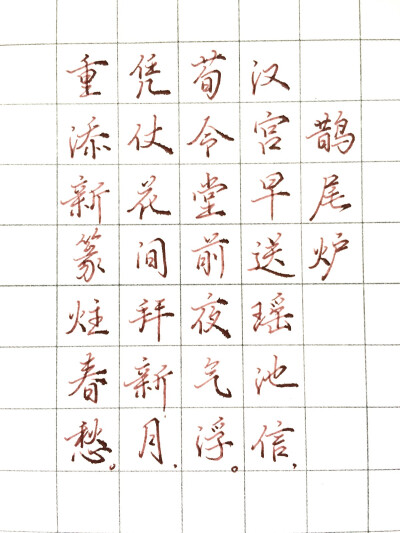 鹊尾炉
汉宫早送瑶池信，
荀令堂前夜气浮。
凭仗花间拜新月，
重添新篆炷春愁。